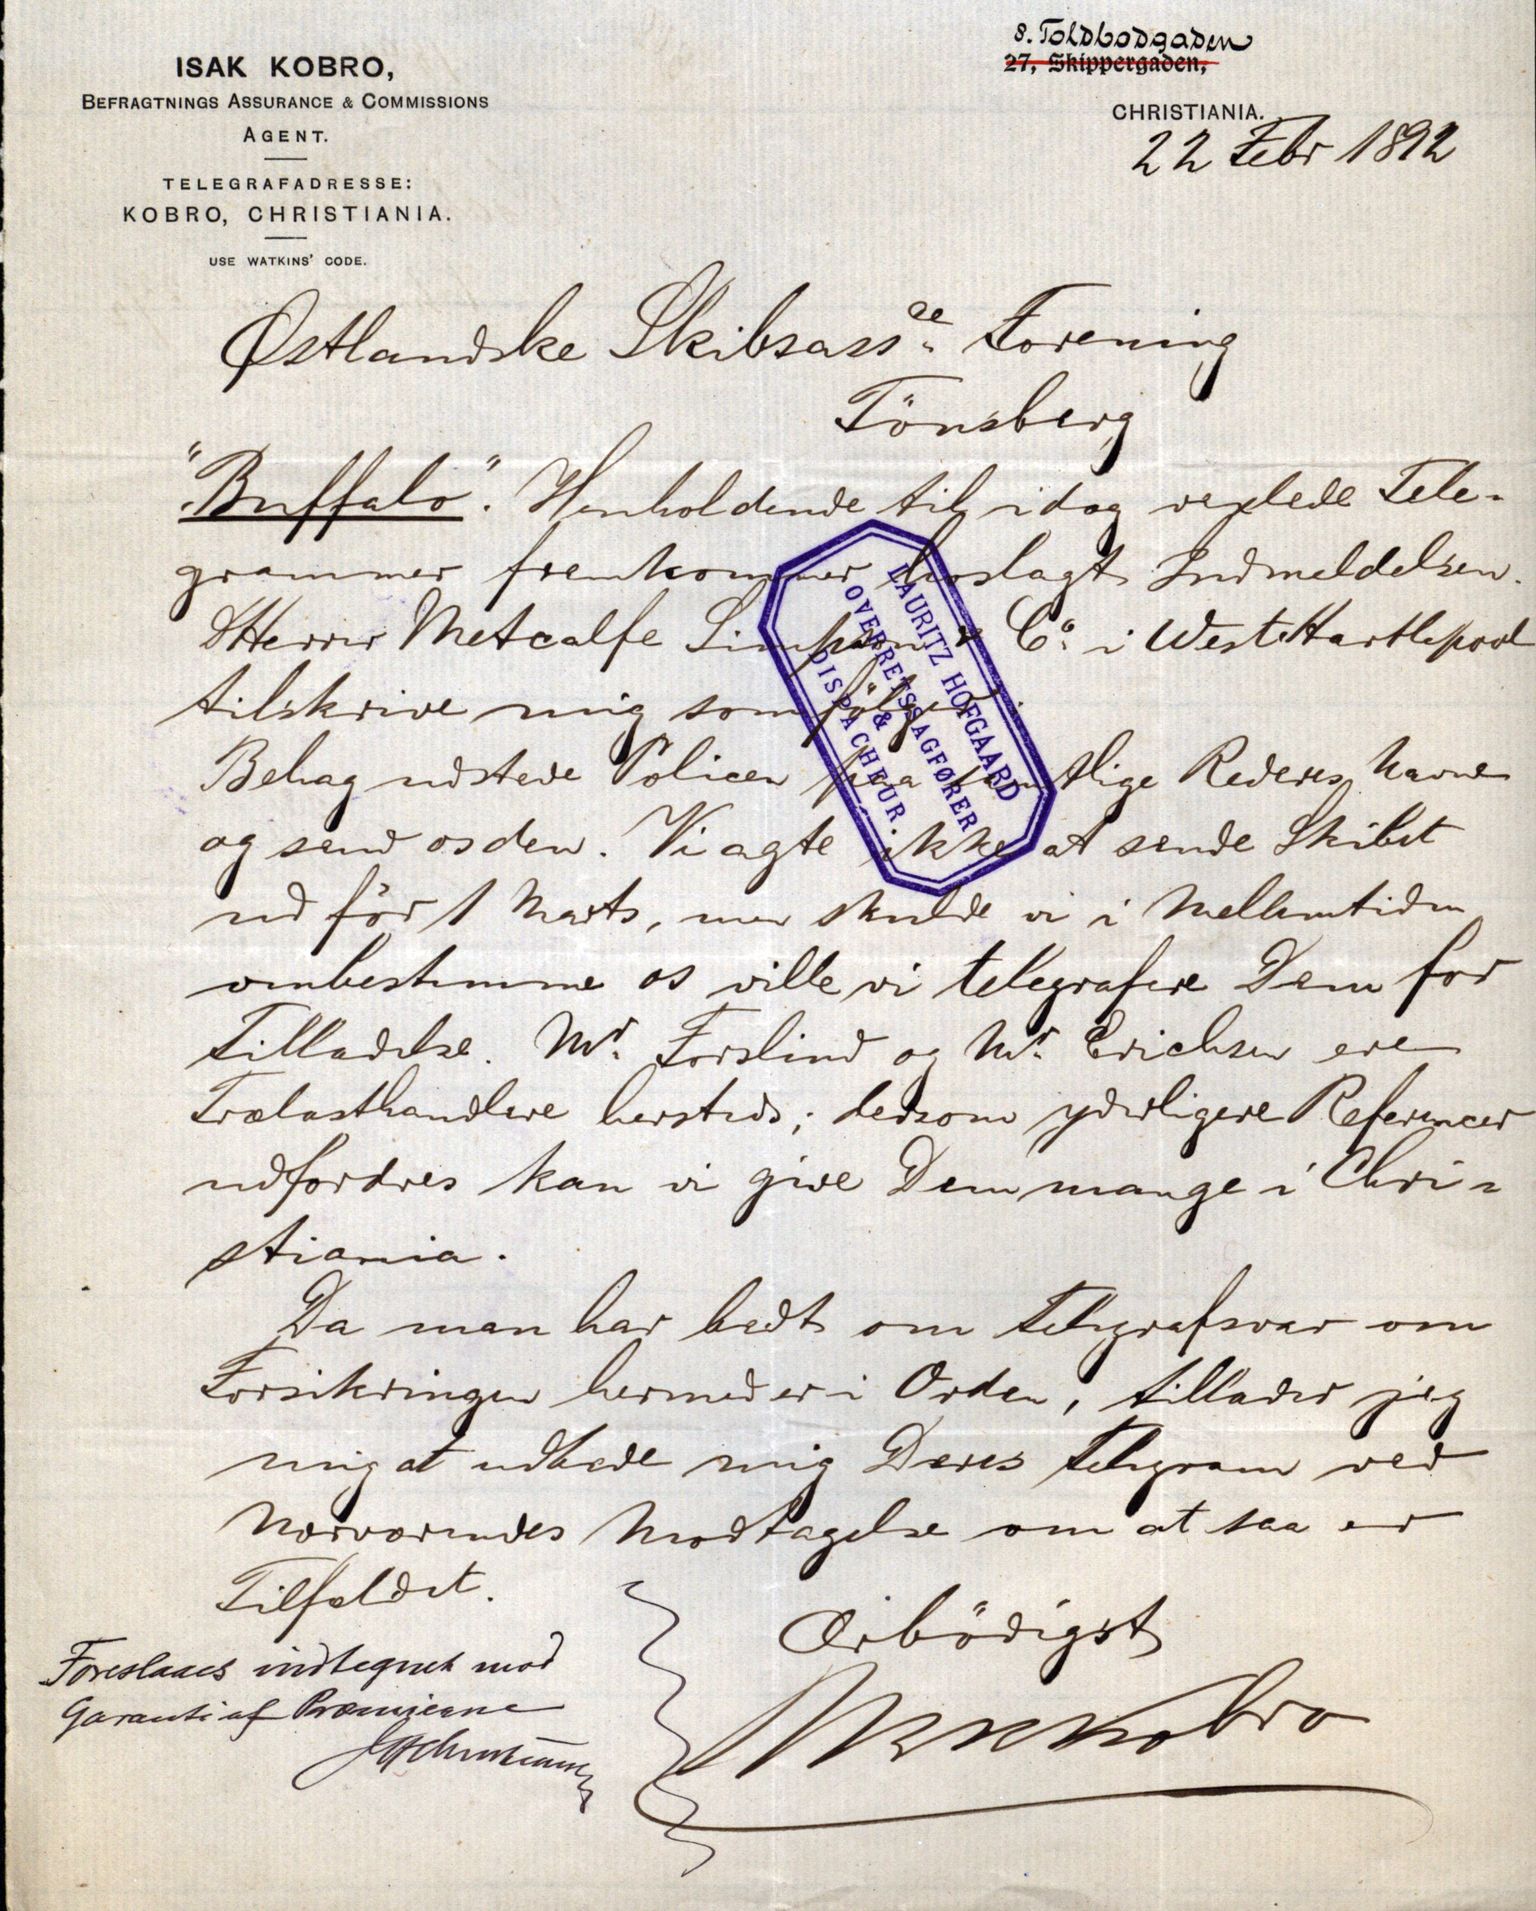 ISAK KOBRO,
BEFRAGTNINGS ASSURANCE & COMMISSIONS
AGENT.
TELEGRAFADRESSE:
KOBRO, CHRISTIANIA.
USE WATKINS' CODE.
8. Toldbodgaden
27, Skippergaden,
CHRISTIANIA.
22 Febr 1892
Østlandske Skibsassce Forening
Tönsberg
"Buffalo". Henholdende til idag vexlede Tele-
grammer fremkommer hoslagt Indmeldelsen.
DHerrer Metcalfe Simpson & Co. i West Hartlepool
tilskrive mig som følger:
Behag udstede Policen paa samtlige Rederes Navne
og send os den. Vi agte ikke at sende Skibet
ud för 1 Marts, men skulde vi i Mellemtiden
ombestemme os ville vi telegrafere Dem for
Tilladelse. Mr. Forslind og Mr. Erichsen ere
Trælasthandlere hersteds; dersom yderligere Referencer
udfordres kan vi give Dem mange i Chri-
stiania.
Da man har bedt om Telegrafsvar om
Forsikringen hermed er i Orden, tillader jeg
mig at udbede mig Deres Telegram ved
Nærværendes Modtagelse om at saa er
Tilfældet.
Ærbödigst
Isak Kobro
Foreslaaes indtegnet mod
Garanti af Præmierne
LAURITZ HOFGAARD
OVERRETSSAGFØRER
&
DISPACHEUR.